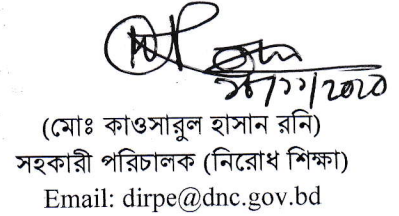 ২৬/১১/২০২০
(মোঃ কাওসারুল হাসান রনি)
সহকারী পরিচালক (নিরোধ শিক্ষা)
Email: dirpe@dnc.gov.bd